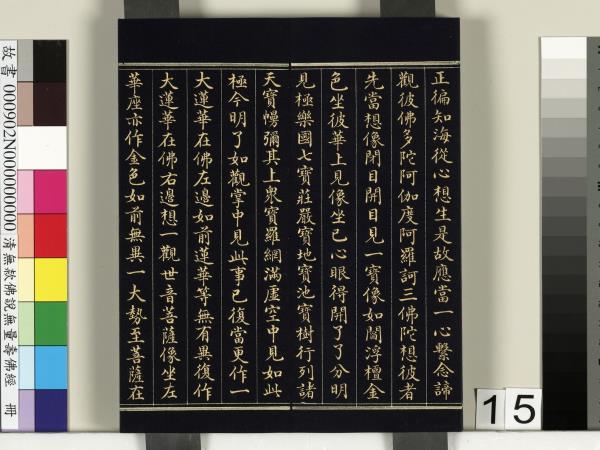 正徧知海從心想生是故應當一心繫念諦
觀彼佛多陀阿伽度阿羅訶三佛陀想彼者
先當想像閉目開目見一寶像如閻浮檀金
色坐彼華上見像坐已心眼得開了了分明
見極樂國七寶莊嚴寶地寶池寶樹行列諸
天寶幔彌其上眾寶羅網滿虛空中見如此
極令明了如觀掌中見此事已復當更作一
大蓮華在佛左邊如前蓮華等無有異復作
大蓮華在佛右邊想一觀世音菩薩像坐左
華座亦作金色如前無異一大勢至菩薩在
故書 000902N000000000 清無款佛說無量壽佛經 冊
15